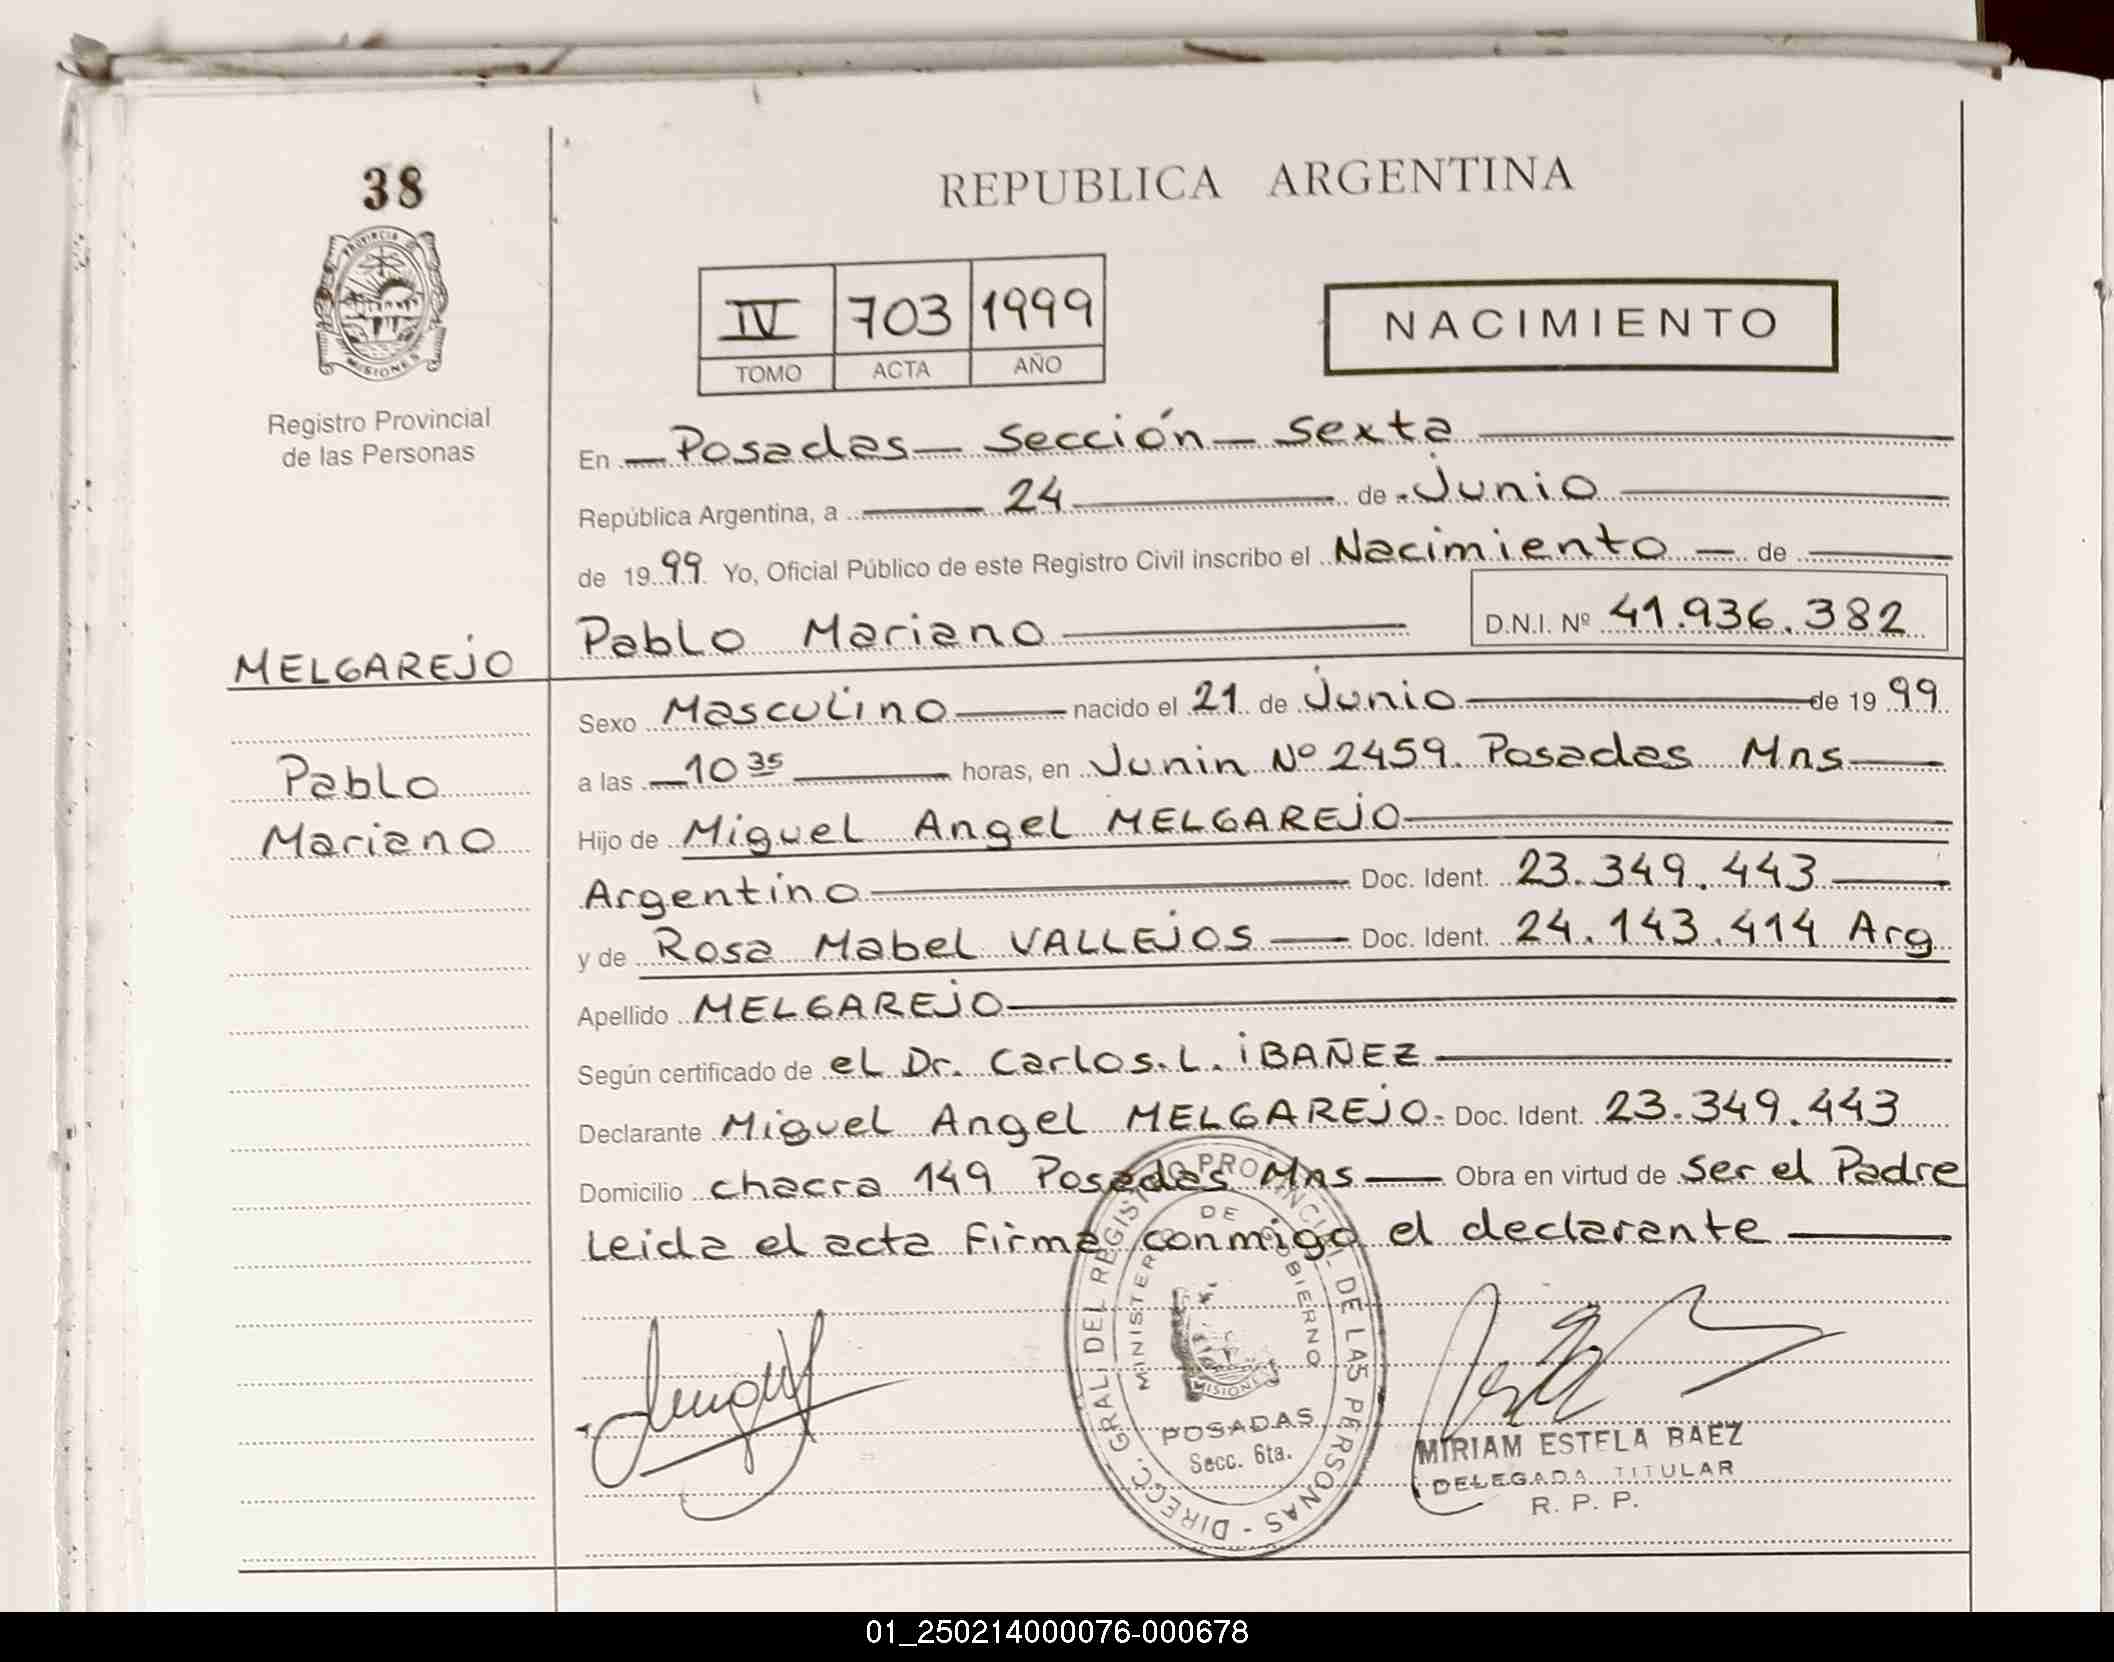 38
PROVINCIA DE
MISIONES
Registro Provincial
de las Personas
REPUBLICA ARGENTINA
IV 703 1999
TOMO ACTA AÑO
NACIMIENTO
En Posadas - Sección - Sexta
República Argentina, a 24 de Junio
de 1999 Yo, Oficial Público de este Registro Civil inscribo el Nacimiento - de
Pablo Mariano D.N.I. Nº 41.936.382
MELGAREJO
Pablo
Mariano
Sexo Masculino nacido el 21 de Junio de 1999
a las 10 35 horas, en Junin Nº 2459. Posadas Mns
Hijo de Miguel Angel MELGAREJO
Argentino Doc. Ident. 23.349.443
y de Rosa Mabel VALLEJOS Doc. Ident. 24.143.414 Arg
Apellido MELGAREJO
Según certificado de el Dr. Carlos. L. IBAÑEZ
Declarante Miguel Angel MELGAREJO - Doc. Ident. 23.349.443
Domicilio chacra 149 Posadas Mns Obra en virtud de Ser el Padre
Leida el acta Firma conmigo el declarante
DIRECC. GRAL. DEL REGISTRO PROVINCIAL DE LAS PERSONAS -
MINISTERIO DE GOBIERNO
MISIONES
POSADAS
Secc. 6ta.
MIRIAM ESTELA BAEZ
DELEGADA TITULAR
R. P. P.
01_250214000076-000678